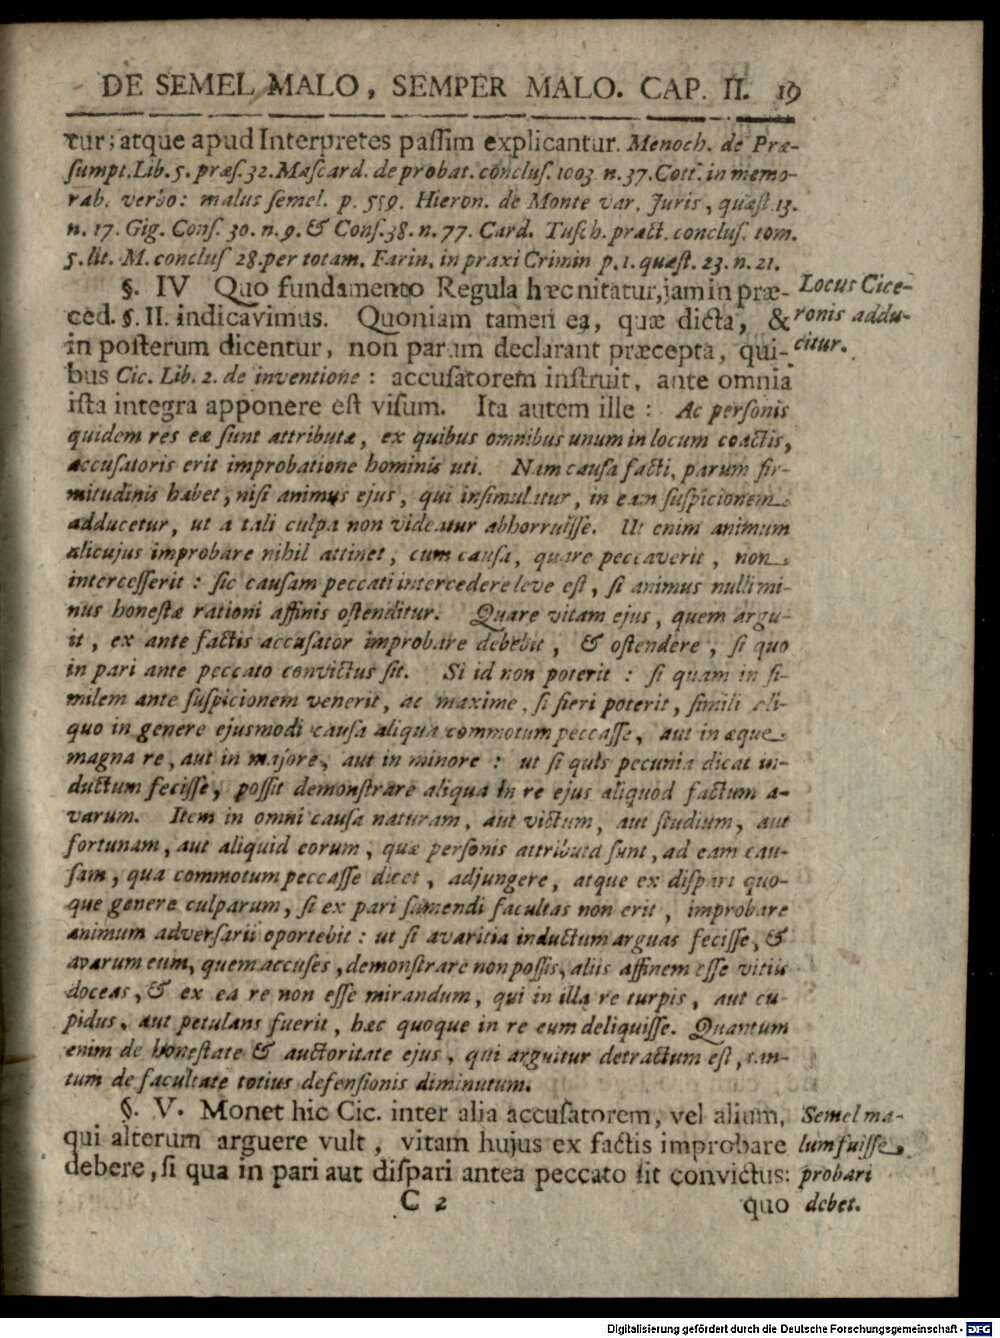 DE SEMEL MALO, SEMPER MALO. CAP. II. 19
tur; atque apud Interpretes passim explicantur. Menoch. de Præ-
sumpt. Lib. 5. præs. 32. Mascard. de probat. conclus. 1003 n. 37. Cott. in memo-
rab. verbo: malus semel. p. 559. Hieron. de Monte var. Juris, quæst 13.
n. 17. Gig. Cons. 30. n. 9. & Cons. 38. n. 77. Card. Tusch. pract. conclus. tom.
5. lit. M. conclus 28. per totam. Farin. in praxi Crimin p. 1. quæst. 23. n. 21.
§. IV Quo fundamento Regula hæc nitatur, jam in præ-
Locus Cice-
ced. §. II. indicavimus. Quoniam tamen ea, quæ dicta, &
ronis addu-
in posterum dicentur, non parum declarant præcepta, qui-
citur.
bus Cic. Lib. 2. de inventione: accusatorem instruit, ante omnia
ista integra apponere est visum. Ita autem ille: Ac personis
quidem res eæ sunt attributæ, ex quibus omnibus unum in locum coactis,
accusatoris erit improbatione hominis uti. Nam causa facti, parum fir-
mitudinis habet, nisi animus ejus, qui insimulatur, in eam suspicionem
adducetur, ut a tali culpa non videatur abhorruisse. Ut enim animum
alicujus improbare nihil attinet, cum causa, quare peccaverit, non
intercesserit: sic causam peccati intercedere leve est, si animus nulli mi-
nus honestæ rationi affinis ostenditur. Quare vitam ejus, quem argu-
it, ex ante factis accusator improbare debebit, & ostendere, si quo
in pari ante peccato convictus sit. Si id non poterit: si quam in si-
milem ante suspicionem venerit, ac maxime, si fieri poterit, simili ali-
quo in genere ejusmodi causa aliqua commotum peccasse, aut in æque
magna re, aut in majore, aut in minore: ut si quis pecunia dicat in-
ductum fecisse, possit demonstrare aliqua in re ejus aliquod factum a-
varum. Item in omni causa naturam, aut victum, aut studium, aut
fortunam, aut aliquid eorum, quæ personis attributa sunt, ad eam cau-
sam, qua commotum peccasse dicet, adjungere, atque ex dispari quo-
que genere culparum, si ex pari sumendi facultas non erit, improbare
animum adversarii oportebit: ut si avaritia inductum arguas fecisse, &
avarum eum, quem accuses, demonstrare non possis, aliis affinem esse vitiis
doceas, & ex ea re non esse mirandum, qui in illa re turpis, aut cu-
pidus, aut petulans fuerit, hæc quoque in re eum deliquisse. Quantum
enim de honestate & auctoritate ejus, qui arguitur detractum est, tan-
tum de facultate totius defensionis diminutum.
§. V. Monet hic Cic. inter alia accusatorem, vel alium,
Semel ma-
qui alterum arguere vult, vitam hujus ex factis improbare
lum fuisse,
debere, si qua in pari aut dispari antea peccato sit convictus:
probari
C 2 quo
debet.
Digitalisierung gefördert durch die Deutsche Forschungsgemeinschaft - DFG